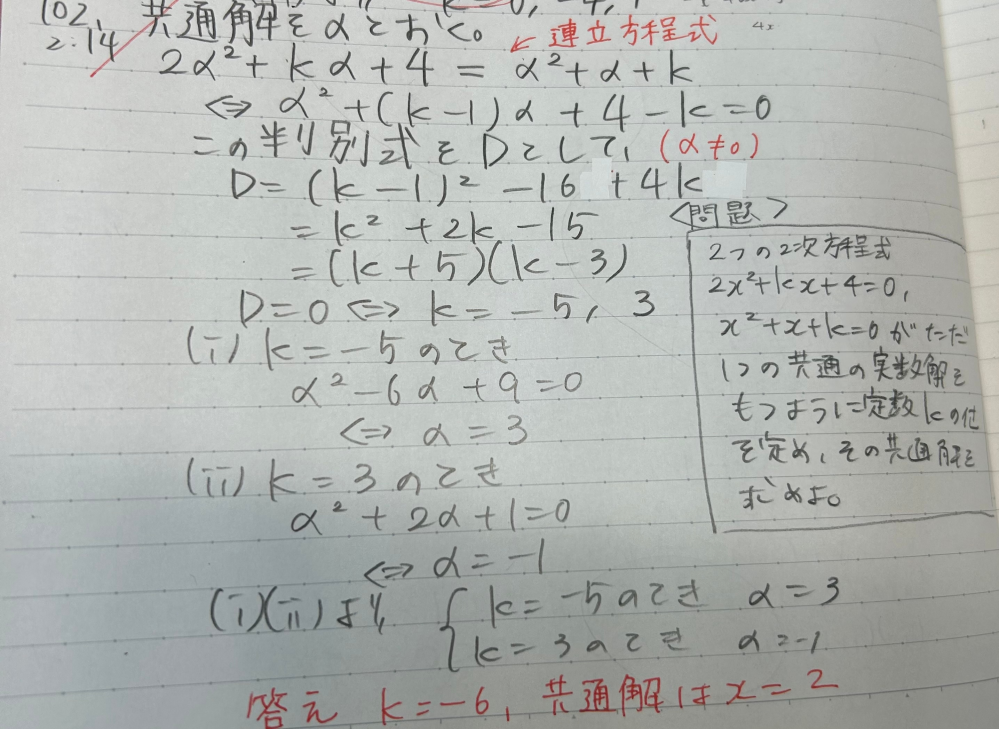 k=0, -4, 1
102, 共通解をαとおく。
2.14
← 連立方程式
4x
2α²+kα+4 = α²+α+k
⇔ α²+(k-1)α+4-k=0
この判別式をDとして, (α≠0)
D=(k-1)²-16+4k
=k²+2k-15
=(k+5)(k-3)
D=0 ⇔ k=-5, 3
(i) k=-5のとき
α²-6α+9=0
⇔ α=3
(ii) k=3のとき
α²+2α+1=0
⇔ α=-1
(i)(ii)より, { k=-5のとき α=3
k=3のとき α=-1
答え k=-6, 共通解はx=2
<問題>
2つの2次方程式
2x²+kx+4=0,
x²+x+k=0がただ
1つの共通の実数解を
もつように定数kの値
を定め、その共通解を
求めよ。